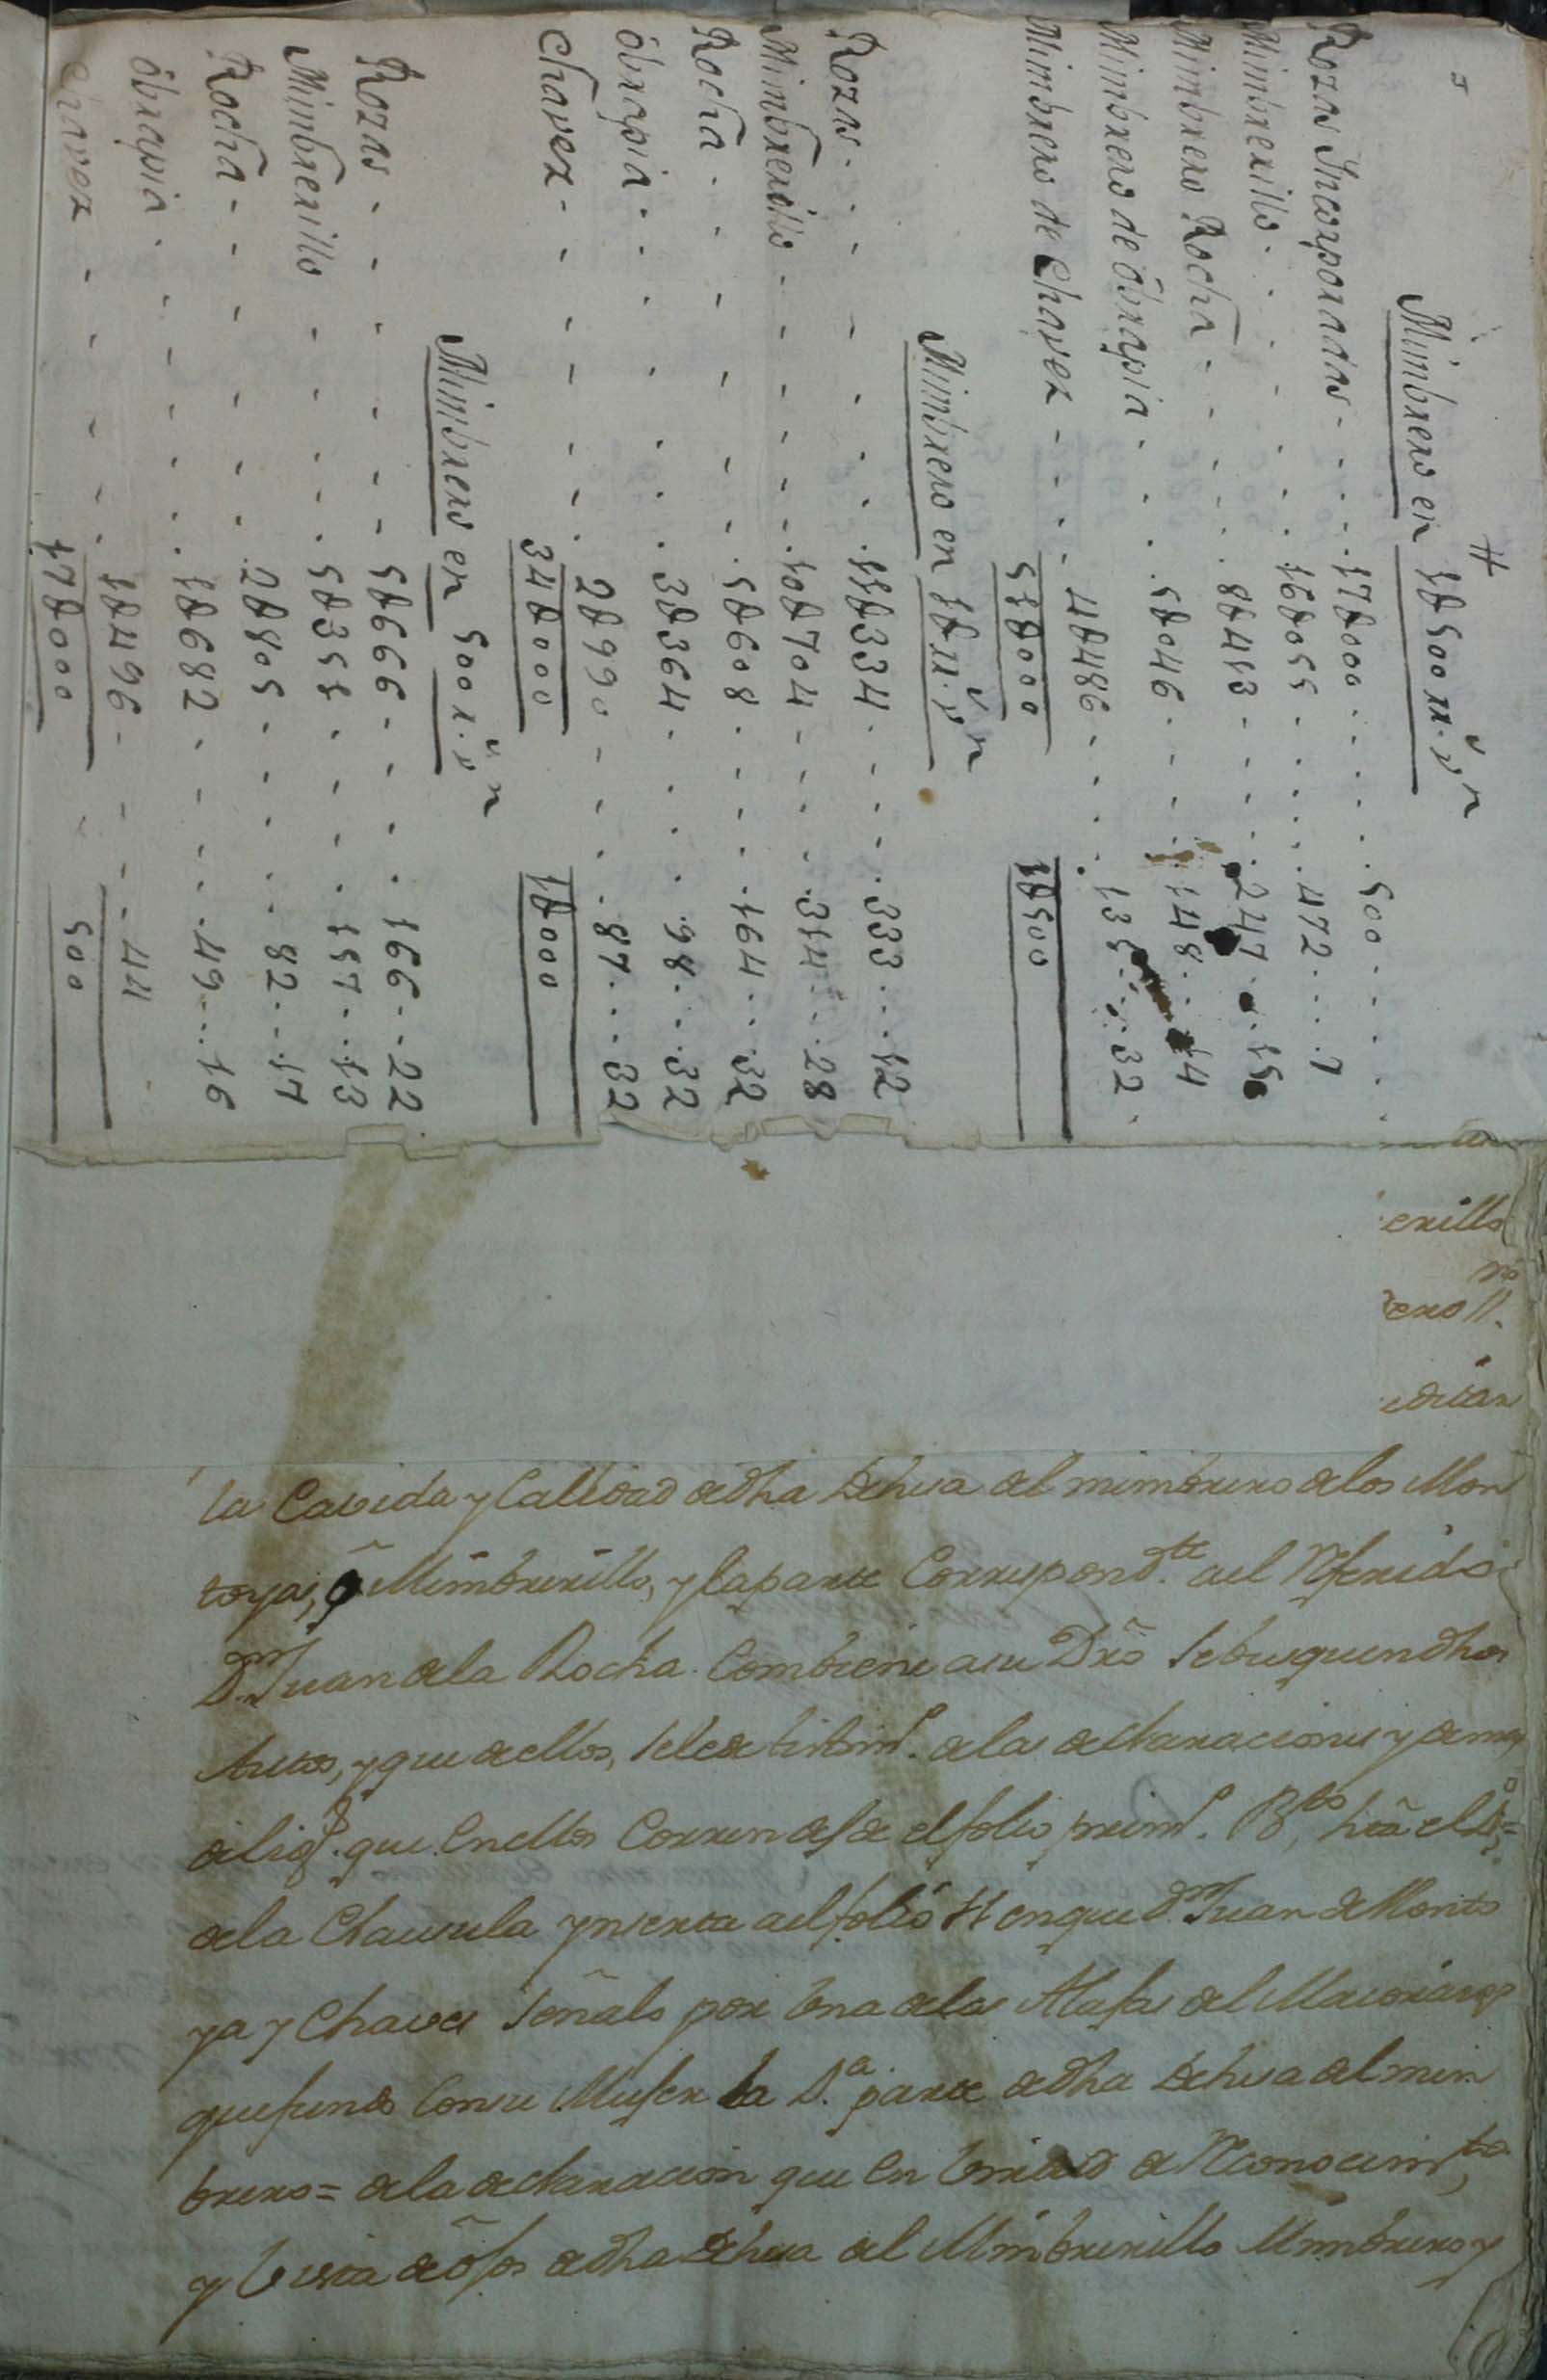 #
Mimbrero en 1U500 rr. vn
Rozas Incorporadas - - - . 17U000 . . . . . 500 . . .
Mimbrerillo . . . . . . 16U055 - . . . . 472 . . . 7
Mimbrero Rocha - - . . . 8U413 - - . . . 247 . . 15
Mimbrero de obrapia . . . 5U046 - - . . 148 . . 14
Mimbrero de Chavez - - . . 4U486 - . . . 131 . . 32
51U000 1U500
Mimbrero en 1U rr. vn
Rozas . . . . . . 11U334 . - - - . 333 . . . 12
Mimbrerillo - - - - - . 10U704 - - . . 314 . . 28
Rocha . - - - - - . 5U608 . - - . 164 . . . 32
obrapia . . . . . . 3U364 . . . . 98 . . . 32
Chavez - - - - - . 2U990 - - . . 87 . . . 32
34U000 1U000
Mimbrero en 500 r. vn
Rozas - - - - - - 5U666 - - . . 166 . . 22
Mimbrerillo - - - . . 5U351 . - - . 157 . . 13
Rocha - - - - . . 2U805 - . . . 82 . . 17
obrapia . . - - . . 1U682 - - - . . 49 . . . 16
Chavez - - - - . 1U496 - - - - 44
17U000 500
erillo
ero
la Cavida y Calidad de dha Dehesa del mimbrero de los Mon
toyas, õ Mimbrerillo, y la parte Correspondte. al Referido
Dn. Juan de la Rocha. Combiene a su Dro se busquen dhos
Autos, y que de ellos, se le de testimo. de las declaraciones y demas
diligs. que en ellos Corren desde el folio prim. hta el
de la Clausula ynserta al folio en que Dn. Juan de Monto
ya y Chaves señalo por una de las Alajas del Maiorazgo
que fundo Con su Muger la Sa. parte de dha Dehesa del mim
brero = de la declaracion que en Virtud de Reconocimto,
y Vista de ojos de dha Dehesa del Mimbrerillo Mimbrero y